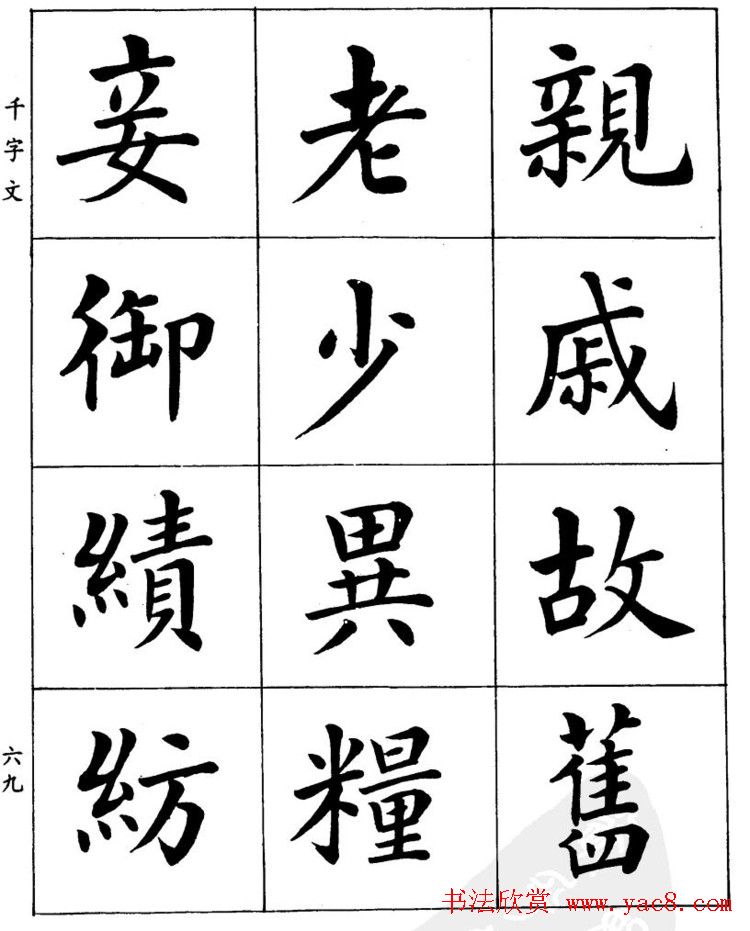 親戚故舊
老少異糧
妾御績紡
千字文
六九
书法欣赏 www.yac8.com